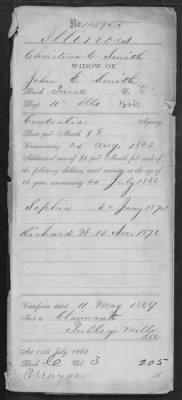 No.
Illinois
Christina C. Smith
WIDOW OF
John E Smith
Rank Priv Co "E"
Reg. 11" Ills
Centralia Agency.
Rate per Month $ 8
Commencing 25 Aug 1863
Additional sum of $2 per Month for each of
the following children, until arriving at the age of
16 years, commencing 25 July 1866
Sophia 20 Jany 1871
Richard W 13 Nov. 1876
Certificate dated 11 May 1869
Sent to Claimant
Pulley's Mill
Ills
Act 14th July, 1862
Book C Vol. 3 205